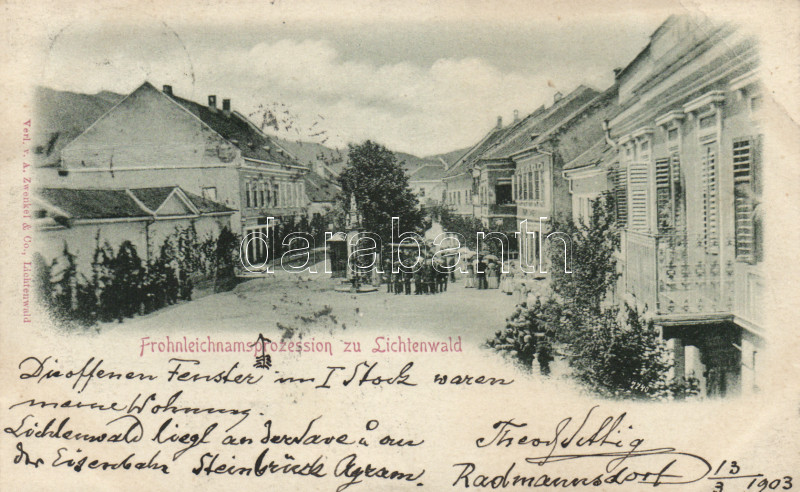 Verl. v. A. Zwenkel & Co., Lichtenwald
darabanth
Frohnleichnamsprozession zu Lichtenwald
Die offenen Fenster im I Stock waren
meine Wohnung.
Lichtenwald liegt an der Save u an
der Eisenbahn Steinbrück Agram.
Theod
Radmannsdorf 13/3 1903